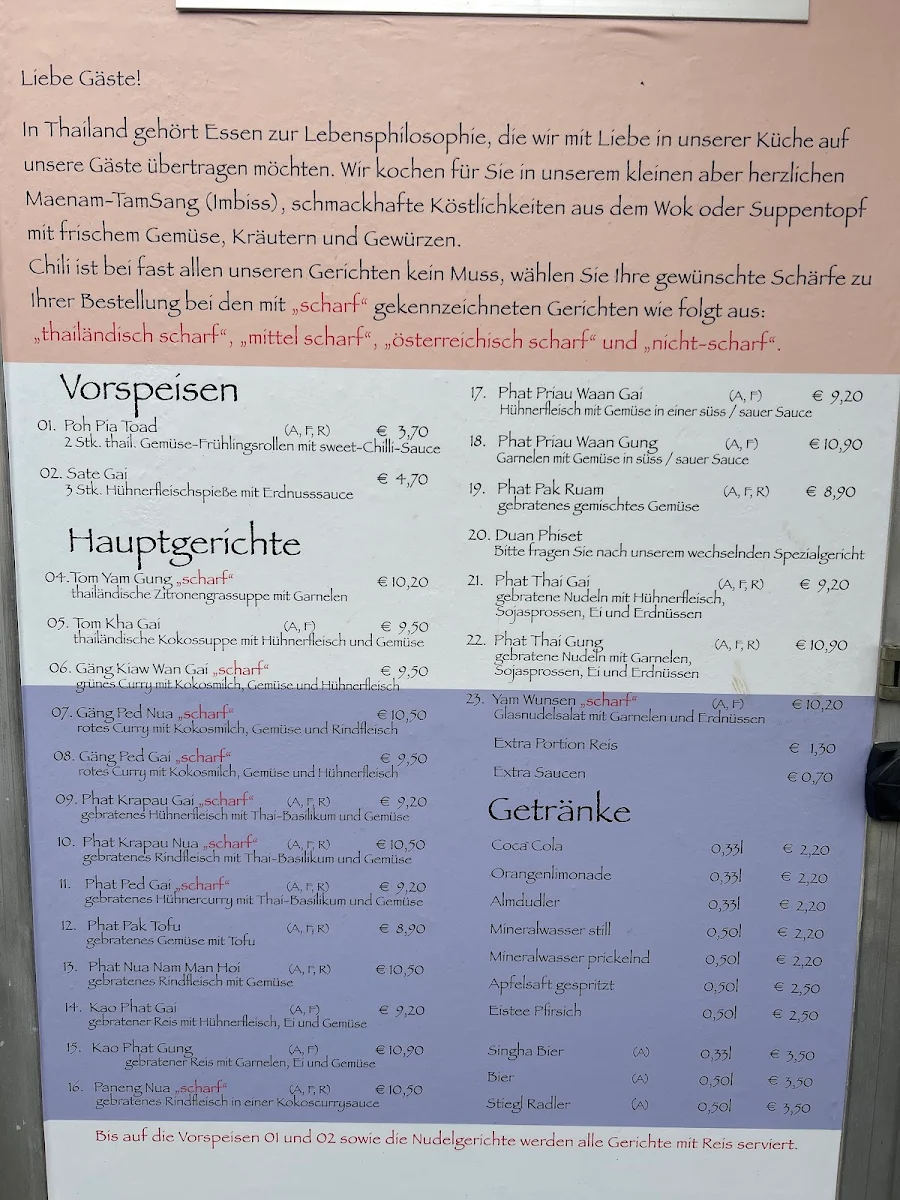 Liebe Gäste!
In Thailand gehört Essen zur Lebensphilosophie, die wir mit Liebe in unserer Küche auf
unsere Gäste übertragen möchten. Wir kochen für Sie in unserem kleinen aber herzlichen
Maenam-TamSang (Imbiss), schmackhafte Köstlichkeiten aus dem Wok oder Suppentopf
mit frischem Gemüse, Kräutern und Gewürzen.
Chili ist bei fast allen unseren Gerichten kein Muss, wählen Sie Ihre gewünschte Schärfe zu
Ihrer Bestellung bei den mit „scharf“ gekennzeichneten Gerichten wie folgt aus:
„thailändisch scharf“, „mittel scharf“, „österreichisch scharf“ und „nicht-scharf“.
Vorspeisen
01. Poh Pia Toad (A, F, R) € 3,70
2 Stk. thail. Gemüse-Frühlingsrollen mit sweet-Chilli-Sauce
02. Sate Gai € 4,70
3 Stk. Hühnerfleischspieße mit Erdnusssauce
Hauptgerichte
04. Tom Yam Gung „scharf“ € 10,20
thailändische Zitronengrassuppe mit Garnelen
05. Tom Kha Gai (A, F) € 9,50
thailändische Kokossuppe mit Hühnerfleisch und Gemüse
06. Gäng Kiaw Wan Gai „scharf“ € 9,50
grünes Curry mit Kokosmilch, Gemüse und Hühnerfleisch
07. Gäng Ped Nua „scharf“ € 10,50
rotes Curry mit Kokosmilch, Gemüse und Rindfleisch
08. Gäng Ped Gai „scharf“ € 9,50
rotes Curry mit Kokosmilch, Gemüse und Hühnerfleisch
09. Phat Krapau Gai „scharf“ (A, F, R) € 9,20
gebratenes Hühnerfleisch mit Thai-Basilikum und Gemüse
10. Phat Krapau Nua „scharf“ (A, F, R) € 10,50
gebratenes Rindfleisch mit Thai-Basilikum und Gemüse
11. Phat Ped Gai „scharf“ (A, F, R) € 9,20
gebratenes Hühnercurry mit Thai-Basilikum und Gemüse
12. Phat Pak Tofu (A, F, R) € 8,90
gebratenes Gemüse mit Tofu
13. Phat Nua Nam Man Hoi (A, F, R) € 10,50
gebratenes Rindfleisch mit Gemüse
14. Kao Phat Gai (A, F) € 9,20
gebratener Reis mit Hühnerfleisch, Ei und Gemüse
15. Kao Phat Gung (A, F) € 10,90
gebratener Reis mit Garnelen, Ei und Gemüse
16. Paneng Nua „scharf“ (A, F, R) € 10,50
gebratenes Rindfleisch in einer Kokoscurrysauce
17. Phat Priau Waan Gai (A, F) € 9,20
Hühnerfleisch mit Gemüse in einer süss / sauer Sauce
18. Phat Priau Waan Gung (A, F) € 10,90
Garnelen mit Gemüse in süss / sauer Sauce
19. Phat Pak Ruam (A, F, R) € 8,90
gebratenes gemischtes Gemüse
20. Duan Phiset
Bitte fragen Sie nach unserem wechselnden Spezialgericht
21. Phat Thai Gai (A, F, R) € 9,20
gebratene Nudeln mit Hühnerfleisch,
Sojasprossen, Ei und Erdnüssen
22. Phat Thai Gung (A, F, R) € 10,90
gebratene Nudeln mit Garnelen,
Sojasprossen, Ei und Erdnüssen
23. Yam Wunsen „scharf“ (A, F) € 10,20
Glasnudelsalat mit Garnelen und Erdnüssen
Extra Portion Reis € 1,30
Extra Saucen € 0,70
Getränke
Coca Cola 0,33l € 2,20
Orangenlimonade 0,33l € 2,20
Almdudler 0,33l € 2,20
Mineralwasser still 0,50l € 2,20
Mineralwasser prickelnd 0,50l € 2,20
Apfelsaft gespritzt 0,50l € 2,50
Eistee Pfirsich 0,50l € 2,50
Singha Bier (A) 0,33l € 3,50
Bier (A) 0,50l € 3,50
Stiegl Radler (A) 0,50l € 3,50
Bis auf die Vorspeisen 01 und 02 sowie die Nudelgerichte werden alle Gerichte mit Reis serviert.